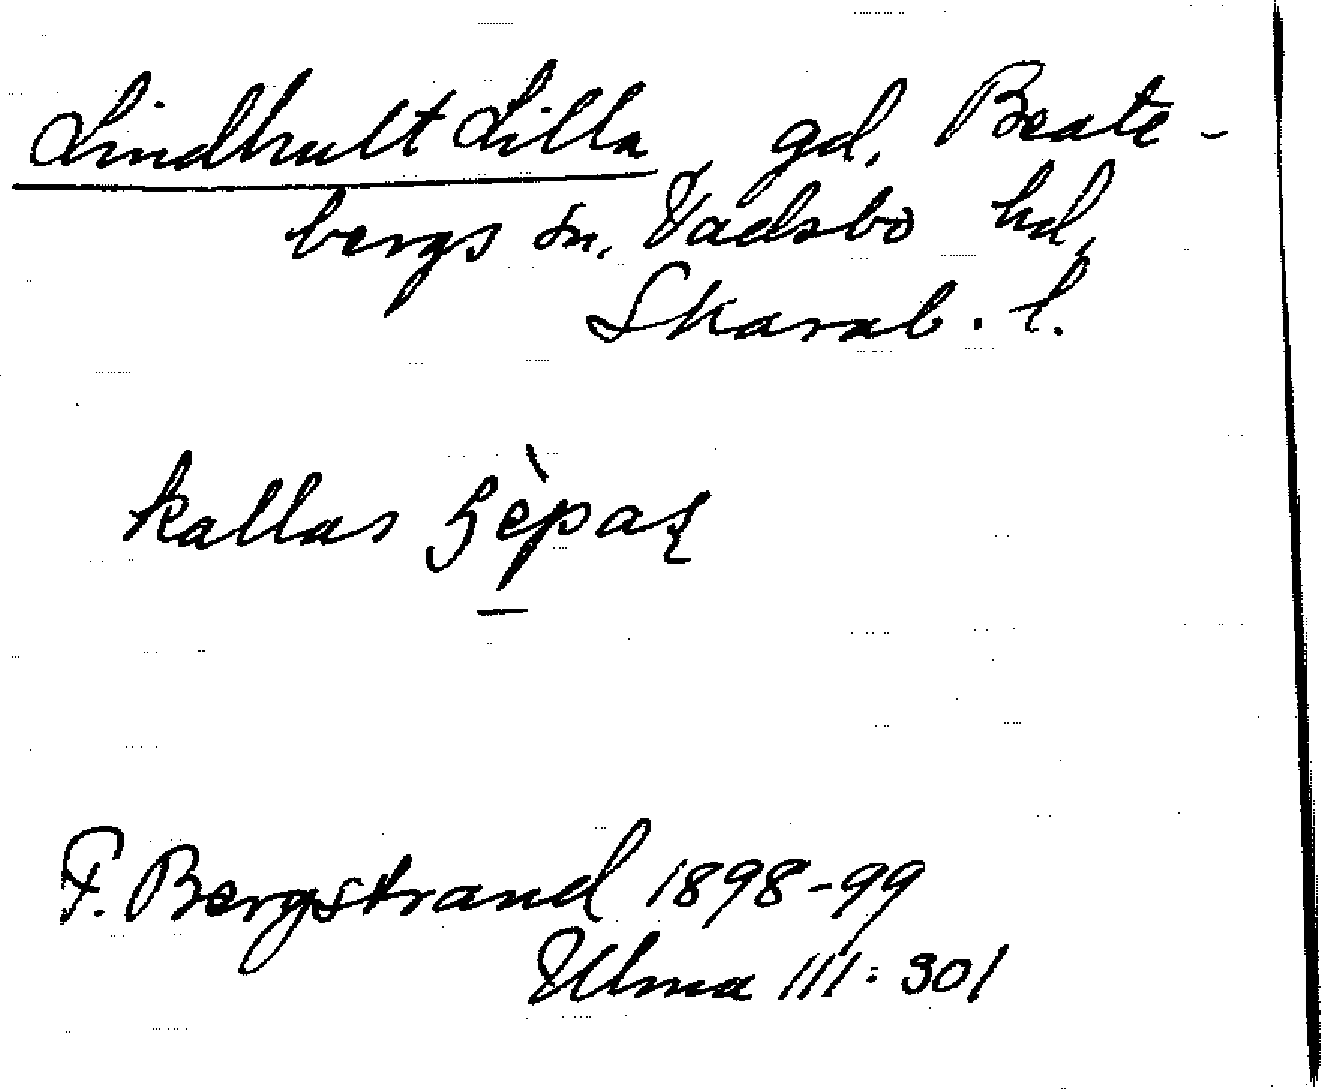 Lindhult Lilla gd, Beate-
bergs sn, Vadsbo hd,
Skarab. l.
kallas
F. Bergstrand 1898-99
Ulma 111:301